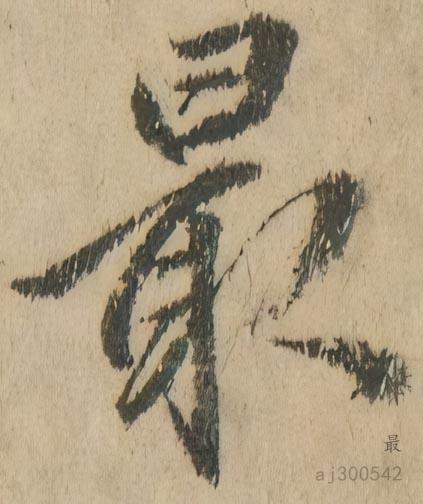 最
最
aj300542